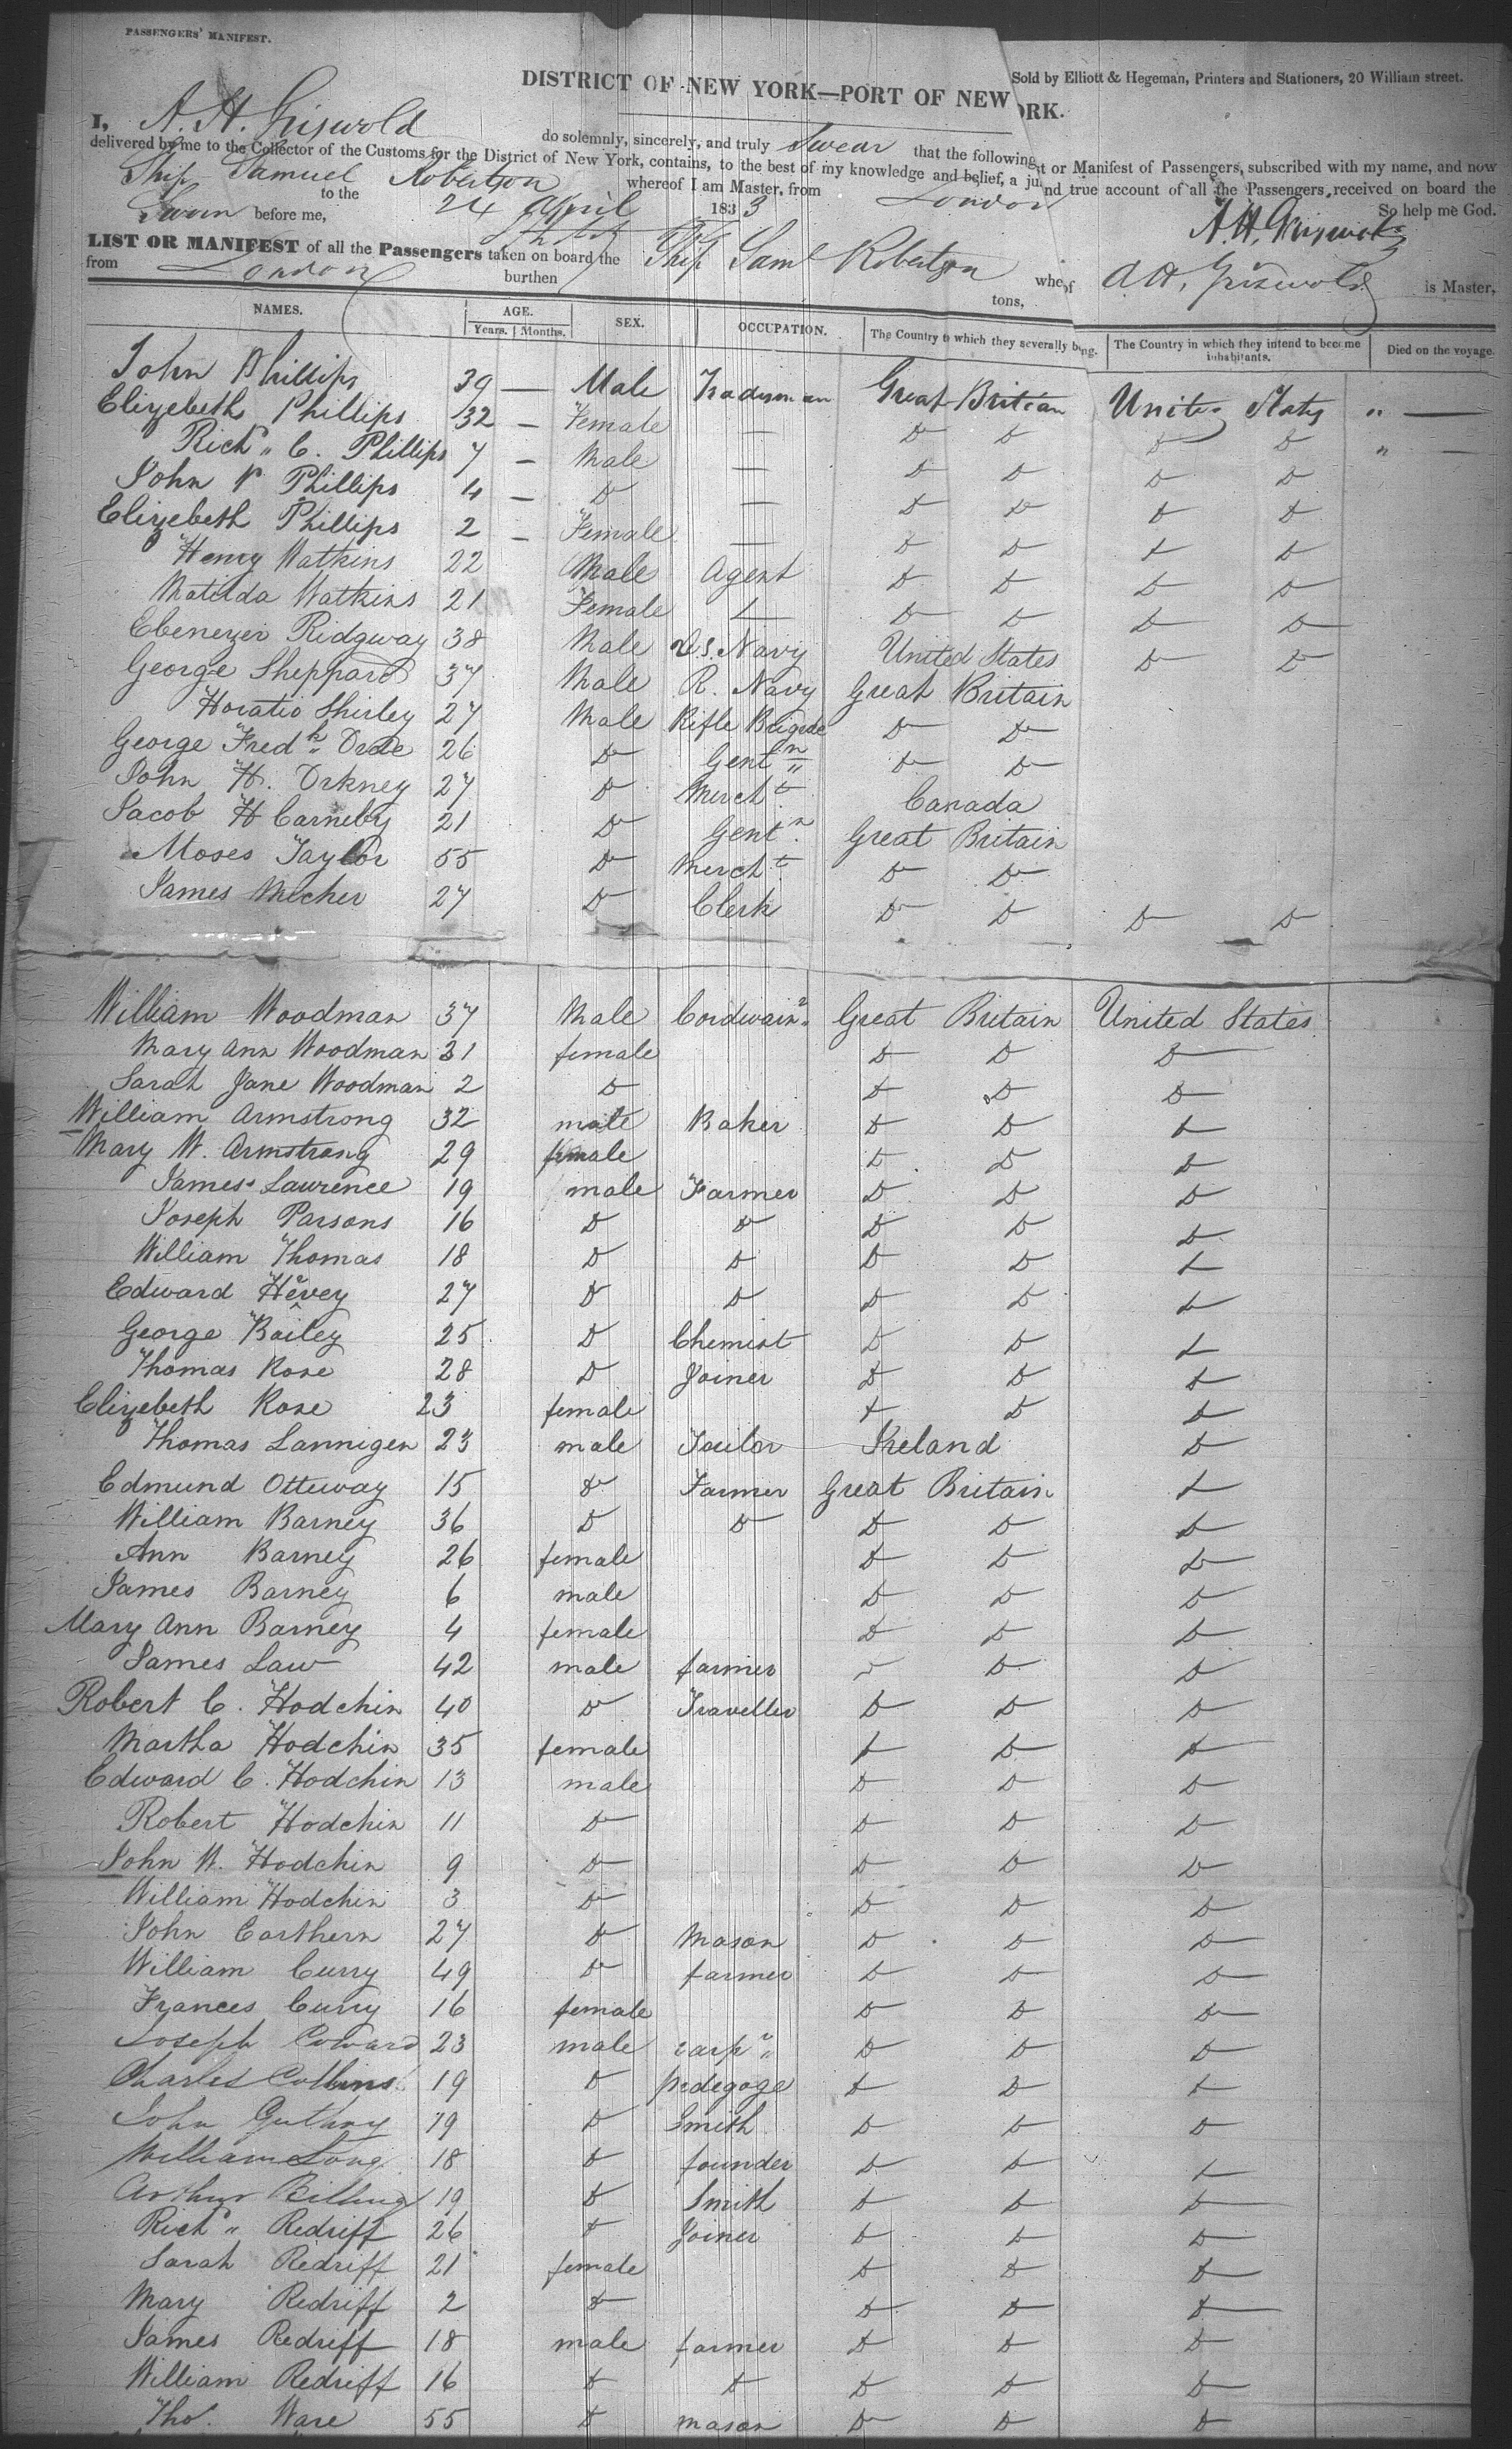 PASSENGERS' MANIFEST.
Sold by Elliott & Hegeman, Printers and Stationers, 20 William street.
DISTRICT OF NEW YORK—PORT OF NEW ORK.
I, A. H. Griswold do solemnly, sincerely, and truly Swear that the following st or Manifest of Passengers, subscribed with my name, and now
delivered by me to the Collector of the Customs for the District of New York, contains, to the best of my knowledge and belief, a ju nd true account of all the Passengers received on board the
Ship Samuel Robertson whereof I am Master, from London
Sworn to the 24 April 1833 So help me God.
before me, A. H. Griswold
LIST OR MANIFEST of all the Passengers taken on board the Ship Saml Robertson whe of A H. Griswold is Master,
from London burthen tons,
NAMES. AGE. SEX. OCCUPATION. The Country to which they severally belong. The Country in which they intend to become inhabitants. Died on the voyage.
Years. Months.
John Phillips 39 — Male Tradisman Great Britian United States " —
Elizebeth Phillips 32 — Female — Do Do Do Do " —
Richd " C. Phillips 7 — Male — Do Do Do Do
John P Phillips 4 — Do — Do Do Do Do
Elizebeth Phillips 2 — Female — Do Do Do Do
Henry Watkins 22 Male Agent Do Do Do Do
Matilda Watkins 21 Female — Do Do Do Do
Ebenezer Ridgway 38 Male U.S. Navy United States Do Do
George Sheppard 37 Male R. Navy Great Britain
Horatio Shirley 27 Male Rifle Brigade Do Do
George Fredk 26 Do Gentn Do Do
John H. Orkney 27 Do Mercht Canada
Jacob H Carneby 21 Do Gentn Great Britain
Moses Taylor 55 Do Mercht Do Do
James Mecher 27 Do Clerk Do Do Do Do
William Woodman 37 Male Cordwainr Great Britain United States
Mary Ann Woodman 31 female Do Do Do
Sarah Jane Woodman 2 Do Do Do Do
William Armstrong 32 male Baker Do Do Do
Mary W. Armstrong 29 female Do Do Do
James Lawrence 19 male Farmer Do Do Do
Joseph Parsons 16 Do Do Do Do Do
William Thomas 18 Do Do Do Do Do
Edward Hevey 27 Do Do Do Do Do
George Bailey 25 Do Chemist Do Do Do
Thomas Rose 28 Do Joiner Do Do Do
Elizebeth Rose 23 female Do Do Do
Thomas Lannigen 23 male Tailor Ireland Do
Edmund Otteway 15 Do Farmer Great Britain Do
William Barney 36 Do Do Do Do Do
Ann Barney 26 female Do Do Do
James Barney 6 male Do Do Do
Mary Ann Barney 4 female Do Do Do
James Law 42 male farmer Do Do Do
Robert C. Hodchin 40 Do Traveller Do Do Do
Martha Hodchin 35 female Do Do Do
Edward C. Hodchin 13 male Do Do Do
Robert Hodchin 11 Do Do Do Do
John W. Hodchin 9 Do Do Do Do
William Hodchin 3 Do Do Do Do
John Carthern 27 Do Mason Do Do Do
William Curry 49 Do farmer Do Do Do
Frances Curry 16 female Do Do Do
Joseph Coward 23 male carpr " Do Do Do
Charles Collins 19 Do pedegoge Do Do Do
John Guthny 19 Do Smith Do Do Do
William Long 18 Do founder Do Do Do
Arthur Billing 19 Do Smith Do Do Do
Richd " Redriff 26 Do Joiner Do Do Do
Sarah Redriff 21 female Do Do Do
Mary Redriff 2 Do Do Do Do
James Redriff 18 male farmer Do Do Do
William Redriff 16 Do Do Do Do Do
Tho. Ware 55 Do mason Do Do Do